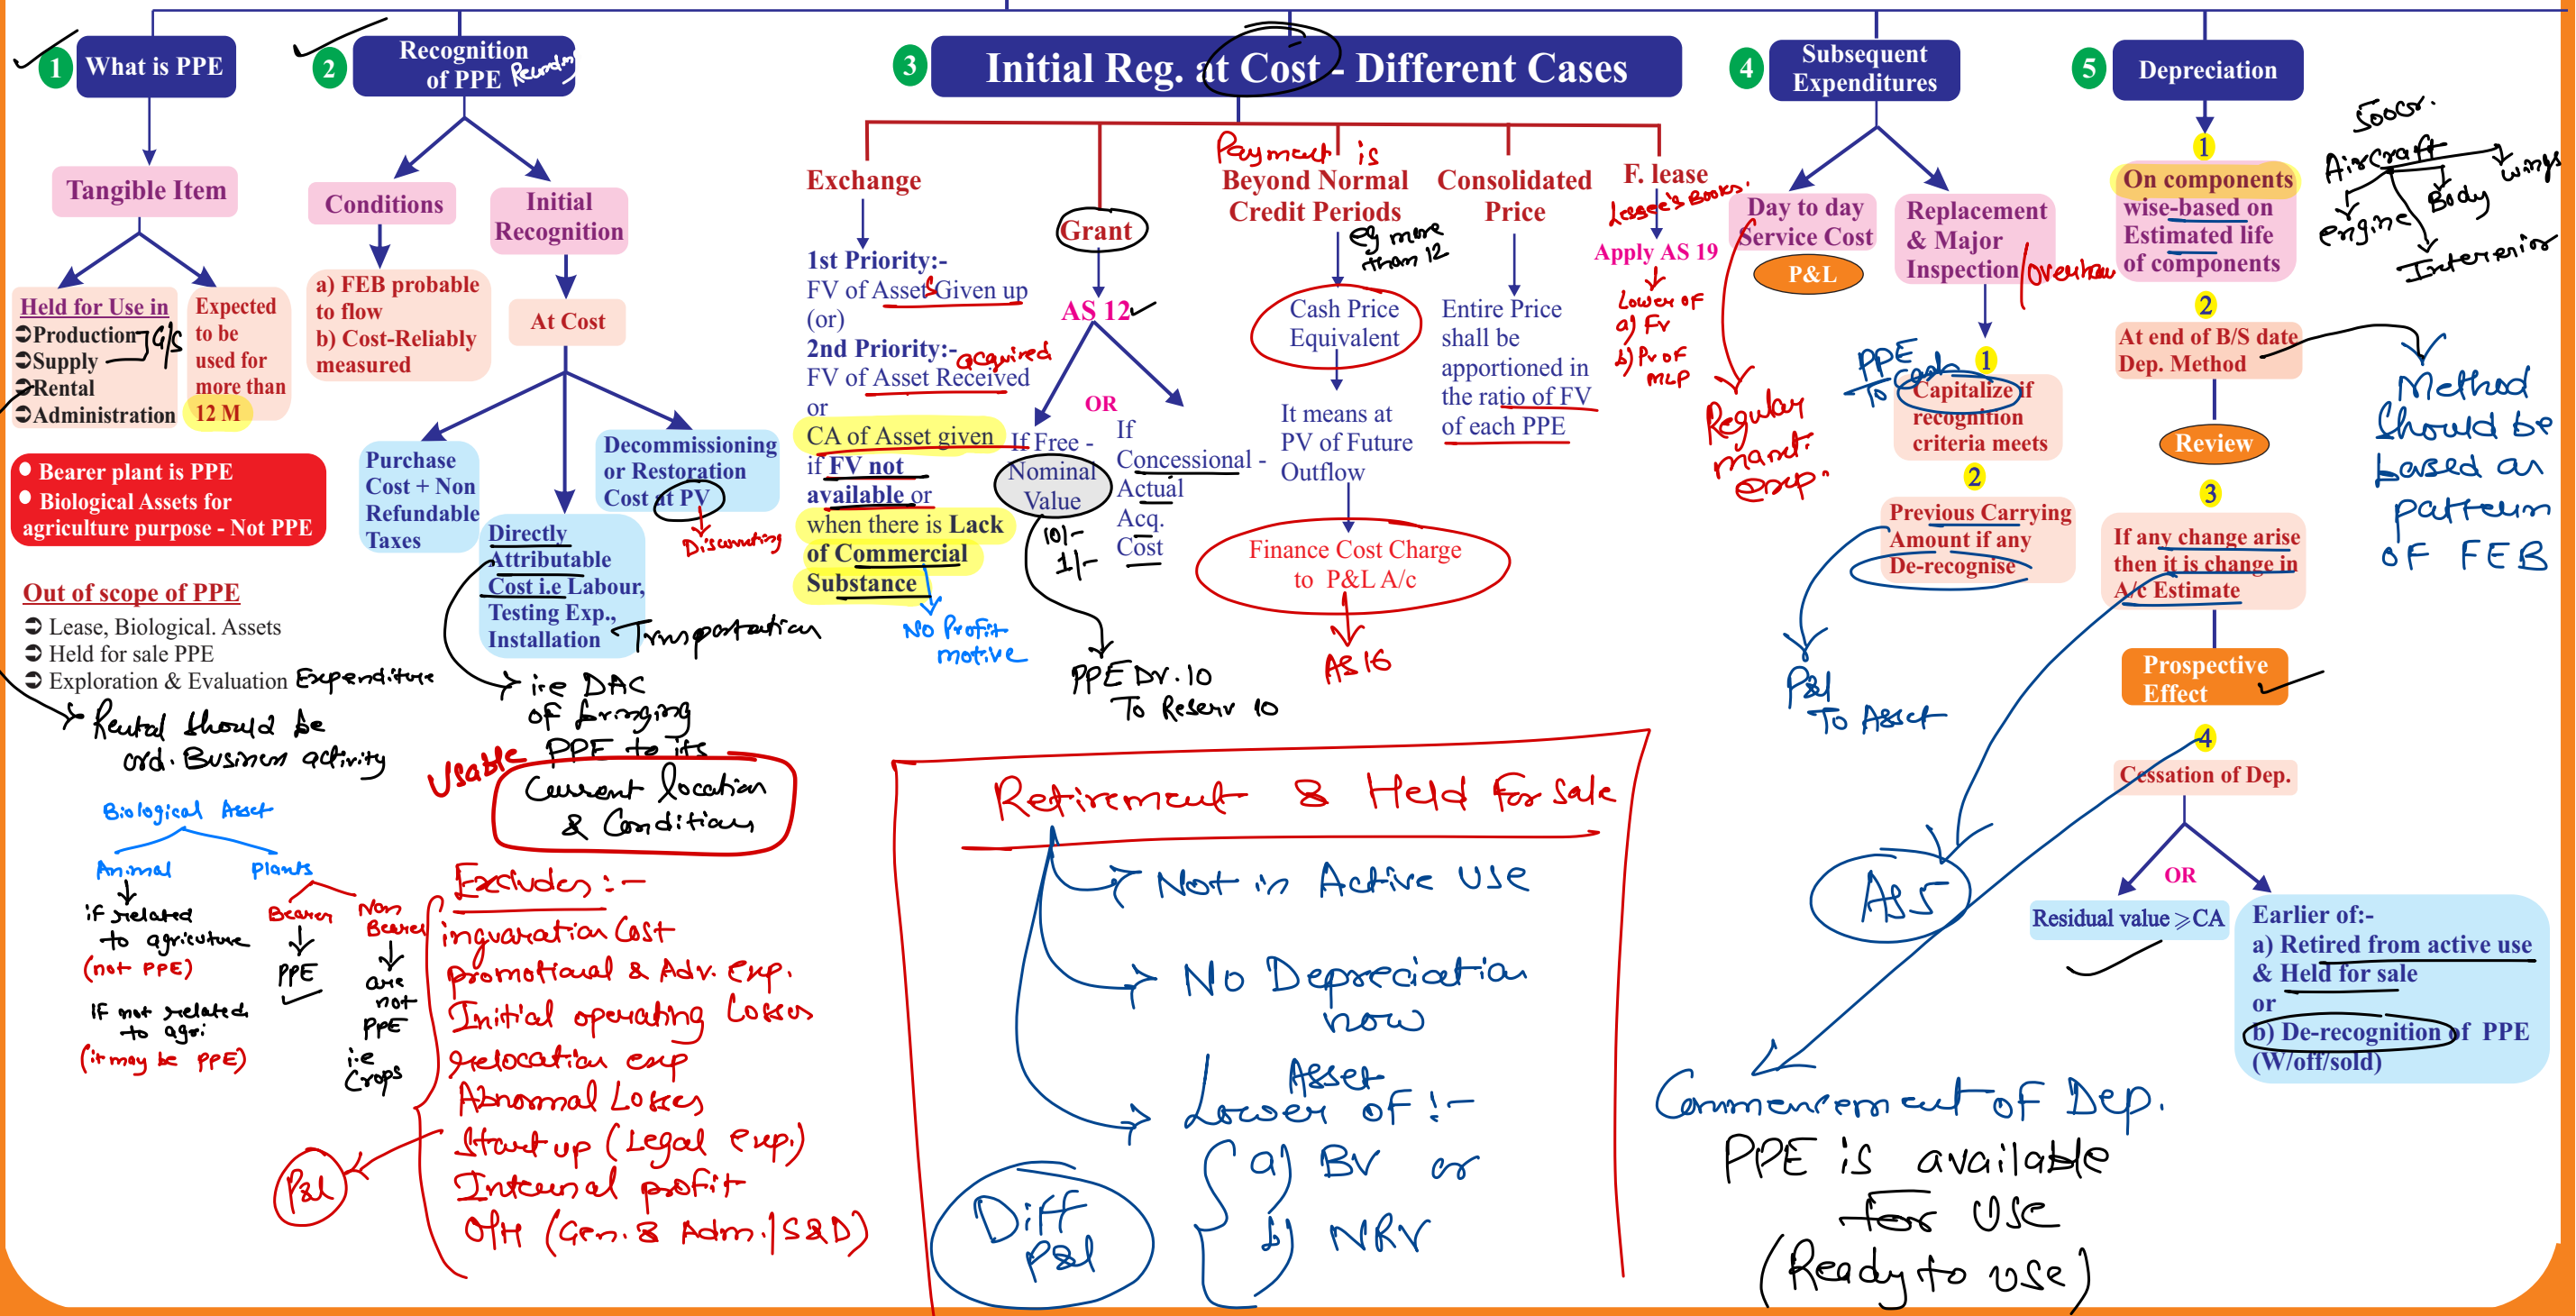 1 What is PPE
Tangible Item
Held for Use in
➲Production
➲Supply
G/S
➲Rental
➲Administration
Expected
to be
used for
more than
12 M
• Bearer plant is PPE
• Biological Assets for
agriculture purpose - Not PPE
Out of scope of PPE
➲ Lease, Biological. Assets
➲ Held for sale PPE
➲ Exploration & Evaluation Expenditure
Rental should be
ord. Business activity
Biological Asset
Animal
if related
to agricuture
(not PPE)
IF not related
to agri
(it may be PPE)
Plants
Bearer
PPE
Non
Bearer
are
not
PPE
i.e
Crops
2 Recognition
of PPE
Conditions
a) FEB probable
to flow
b) Cost-Reliably
measured
Initial
Recognition
At Cost
Purchase
Cost + Non
Refundable
Taxes
Directly
Attributable
Cost i.e Labour,
Testing Exp.,
Installation
Decommissioning
or Restoration
Cost at PV
Discounting
i.e DAC
of bringing
PPE to its
Usable
Current location
& Condition
Excludes :-
promotional & Adv. exp.
Initial operating Losses
relocation exp
Abnormal Losses
Start up (Legal exp.)
Internal profit
O/H (Gen. & Adm./S&D)
P&L
3 Initial Reg. at Cost - Different Cases
Exchange
1st Priority:-
FV of Assets Given up
(or)
2nd Priority:-
acquired
FV of Asset Received
or
CA of Asset given
if FV not
available or
when there is Lack
of Commercial
Substance
No Profit
motive
Grant
AS 12
OR
If Free -
Nominal
Value
10/-
1/-
PPE Dr. 10
To Reserv 10
If
Concessional -
Actual
Acq.
Cost
Payment is
Beyond Normal
Credit Periods
eg more
than 12
Cash Price
Equivalent
It means at
PV of Future
Outflow
Finance Cost Charge
to P&L A/c
AS 16
Consolidated
Price
Entire Price
shall be
apportioned in
the ratio of FV
of each PPE
F. lease
Lessee's Books.
Apply AS 19
Lower of
a) FV
b) PV OF
MLP
Retirement & Held For Sale
Not in Active Use
No Depreciation
now
Asset
Lower of :-
a) BV or
b) NRV
Diff
P&L
4 Subsequent
Expenditures
Day to day
Service Cost
P&L
Regular
exp.
Replacement
& Major
Inspection
PPE
To Cash
1
Capitalize if
recognition
criteria meets
2
Previous Carrying
Amount if any
De-recognise
P&L
To Asset
5 Depreciation
500cr.
Aircraft
wings
Body
engine
1
On components
wise-based on
Estimated life
of components
2
At end of B/S date
Dep. Method
Review
Method
should be
based on
pattern
OF FEB
3
If any change arise
then it is change in
A/c Estimate
Prospective
Effect
AS5
4
Cessation of Dep.
OR
Residual value ⩾CA
Earlier of:-
a) Retired from active use
& Held for sale
or
b) De-recognition of PPE
(W/off/sold)
Commencement of Dep.
PPE is available
for use
(Ready to use)